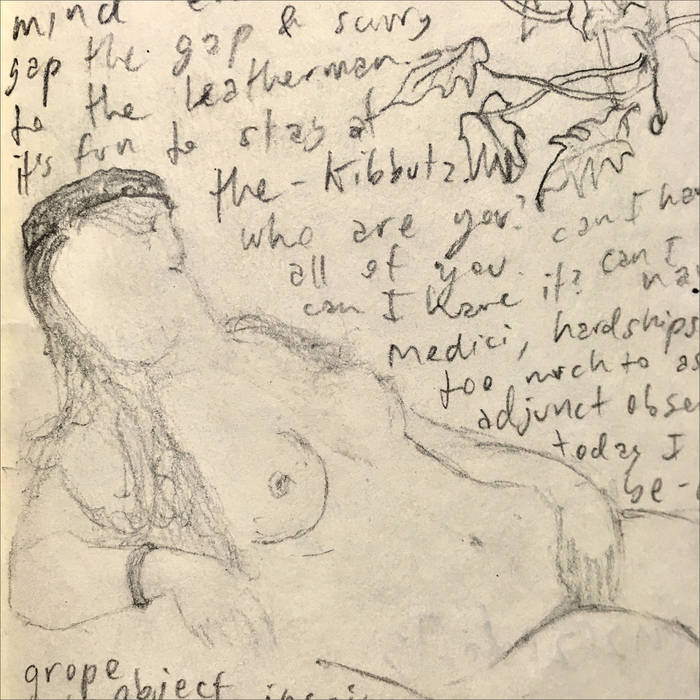 mind
gap the gap & scurry
to the leatherman.
it's fun to stay at
the - Kibbutz.
who are you? can I ha
all of you. can I
can I have it? na
Medici, hardships
too much to as
adjunct obse
today I
be -
grope
object